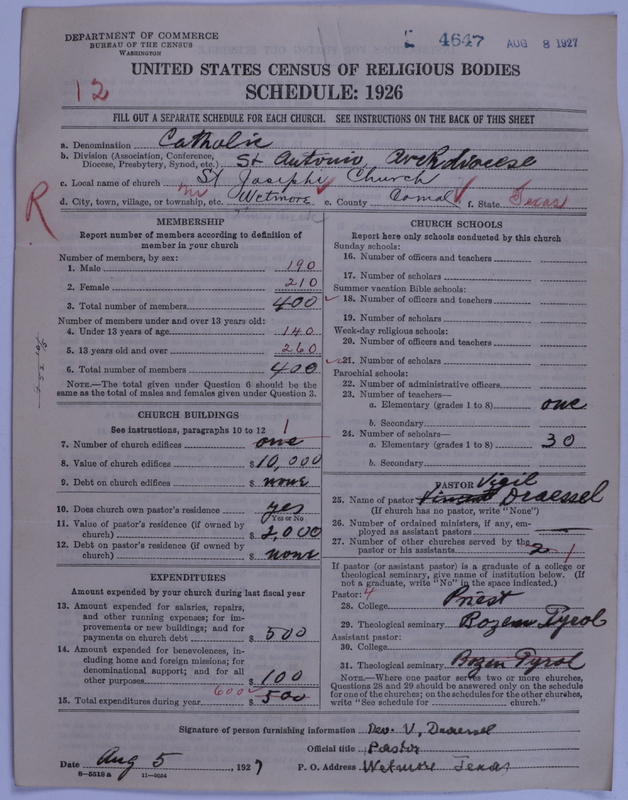 DEPARTMENT OF COMMERCE
BUREAU OF THE CENSUS
WASHINGTON
4647 AUG 8 1927
UNITED STATES CENSUS OF RELIGIOUS BODIES
12
SCHEDULE: 1926
FILL OUT A SEPARATE SCHEDULE FOR EACH CHURCH. SEE INSTRUCTIONS ON THE BACK OF THIS SHEET
a. Denomination Catholic
b. Division (Association, Conference, Diocese, Presbytery, Synod, etc.) St Antonio Archdiocese
c. Local name of church St Josephs Church
d. City, town, village, or township, etc. Wetmore e. County Comal f. State Texas
R
MEMBERSHIP
Report number of members according to definition of
member in your church
Number of members, by sex:
1. Male 190
2. Female 210
3. Total number of members 400
Number of members under and over 13 years old:
4. Under 13 years of age 140
5. 13 years old and over 260
6. Total number of members 400
NOTE.—The total given under Question 6 should be
same as the total of males and females given under Question 3.
CHURCH BUILDINGS
See instructions, paragraphs 10 to 12
7. Number of church edifices one 1
8. Value of church edifices $10,000
9. Debt on church edifices $ none
10. Does church own pastor's residence? yes
Yes or No
11. Value of pastor's residence (if owned by
church) $ 2,000
12. Debt on pastor's residence (if owned by
church) $ none
EXPENDITURES
Amount expended by your church during last fiscal year
13. Amount expended for salaries, repairs,
and other running expenses; for im-
provements or new buildings; and for
payments on church debt $ 500
14. Amount expended for benevolences, in-
cluding home and foreign missions; for
denominational support; and for all
other purposes $ 100
600
15. Total expenditures during year $ 500
CHURCH SCHOOLS
Report here only schools conducted by this church
Sunday schools:
16. Number of officers and teachers
17. Number of scholars
Summer vacation Bible schools:
18. Number of officers and teachers
19. Number of scholars
Week-day religious schools:
20. Number of officers and teachers
21. Number of scholars
Parochial schools:
22. Number of administrative officers
23. Number of teachers—
a. Elementary (grades 1 to 8) one
b. Secondary
24. Number of scholars—
a. Elementary (grades 1 to 8) 30
b. Secondary
PASTOR Vigil
25. Name of pastor Vincent Draessel
(If church has no pastor, write "None")
26. Number of ordained ministers, if any, em-
ployed as assistant pastors
27. Number of other churches served by the
pastor or his assistants 2 1
If pastor (or assistant pastor) is a graduate of a college or
theological seminary, give name of institution below. (If
not a graduate, write "No" in the space indicated.)
Pastor: 4
28. College Priest
29. Theological seminary Bozen Tyrol
Assistant pastor:
30. College
31. Theological seminary Bozen Tyrol
NOTE.—Where one pastor serves two or more churches,
Questions 28 and 29 should be answered only on the schedule
for one of the churches; on the schedules for the other churches,
write "See schedule for church."
Signature of person furnishing information Rev. V. Draessel
Official title Pastor
Date Aug 5, 1927 P. O. Address Wetmore Texas
8—5519 a 11—9054